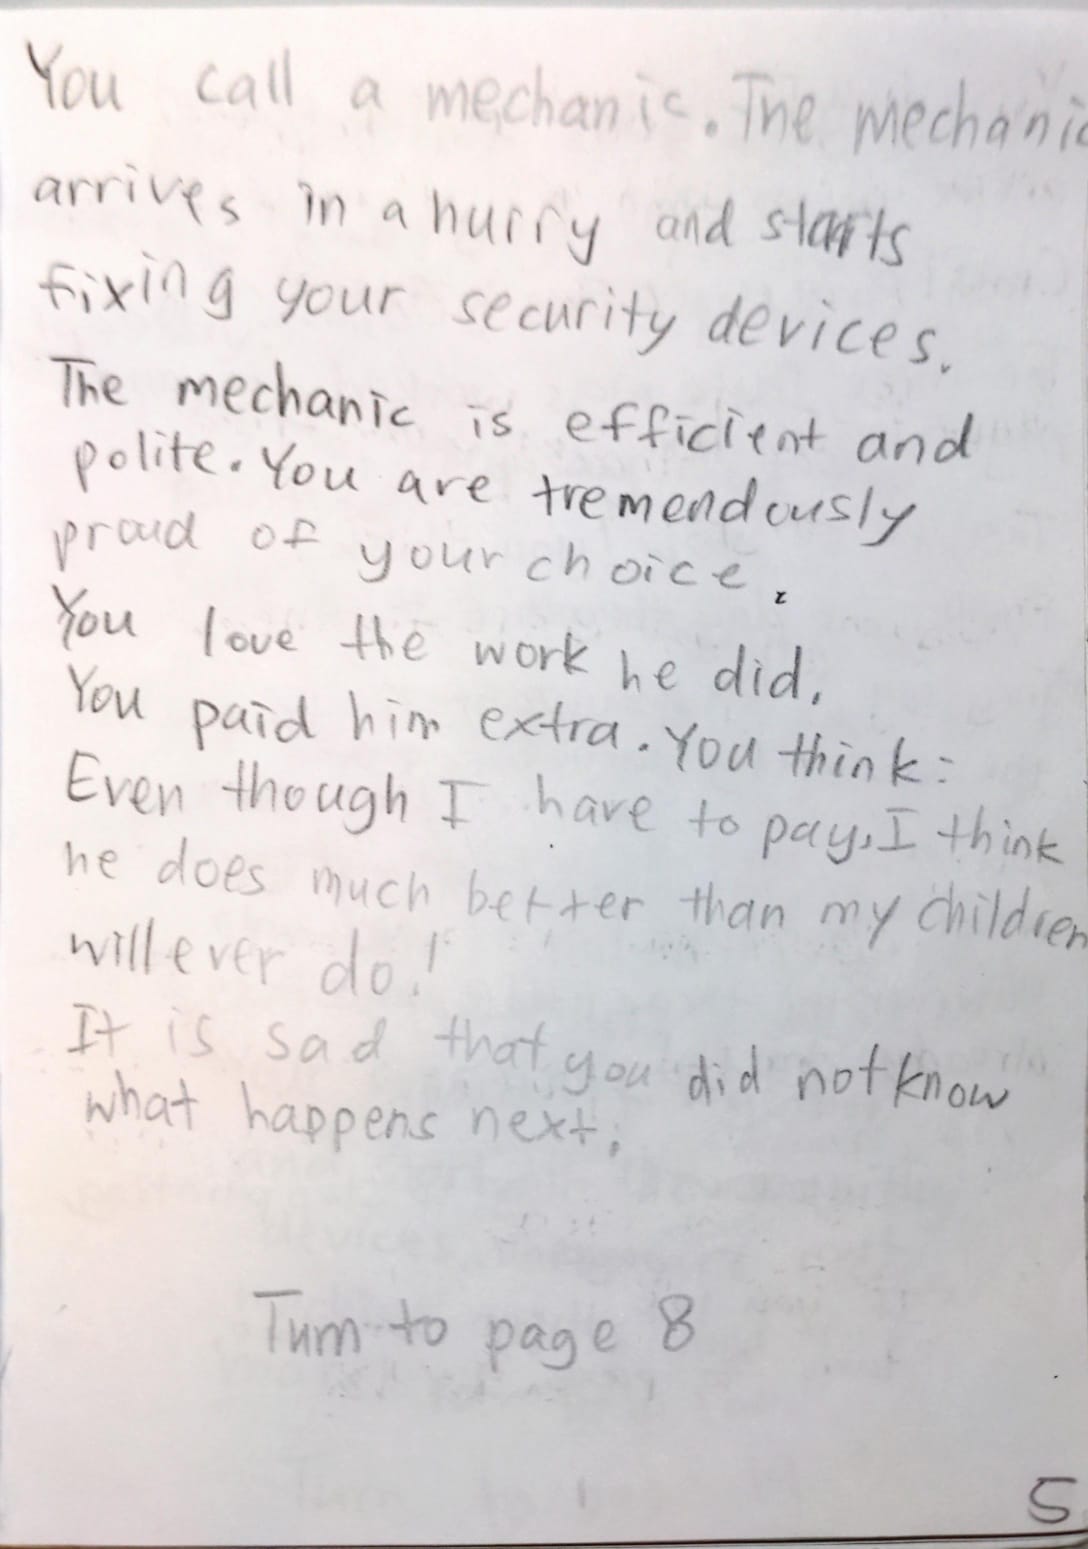 You call a mechanic. The mechanic
arrives in a hurry and starts
fixing your security devices.
The mechanic is efficient and
polite. You are tremendously
proud of your choice.
You love the work he did.
You paid him extra. You think:
Even though I have to pay, I think
he does much better than my children
will ever do!
It is sad that you did not know
what happens next.
Turn to page 8
5